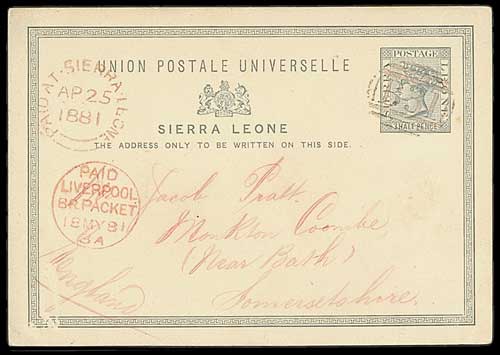 UNION POSTALE UNIVERSELLE
SIERRA LEONE
THE ADDRESS ONLY TO BE WRITTEN ON THIS SIDE.
POSTAGE
LEONE
HALF PENCE
PAID AT SIERRA LEONE
AP 25
1881
PAID
LIVERPOOL
BR. PACKET
18 MY 81
3A
Jacob Pratt.
Monkton Coombe,
(Near Bath)
Somersetshire.
England